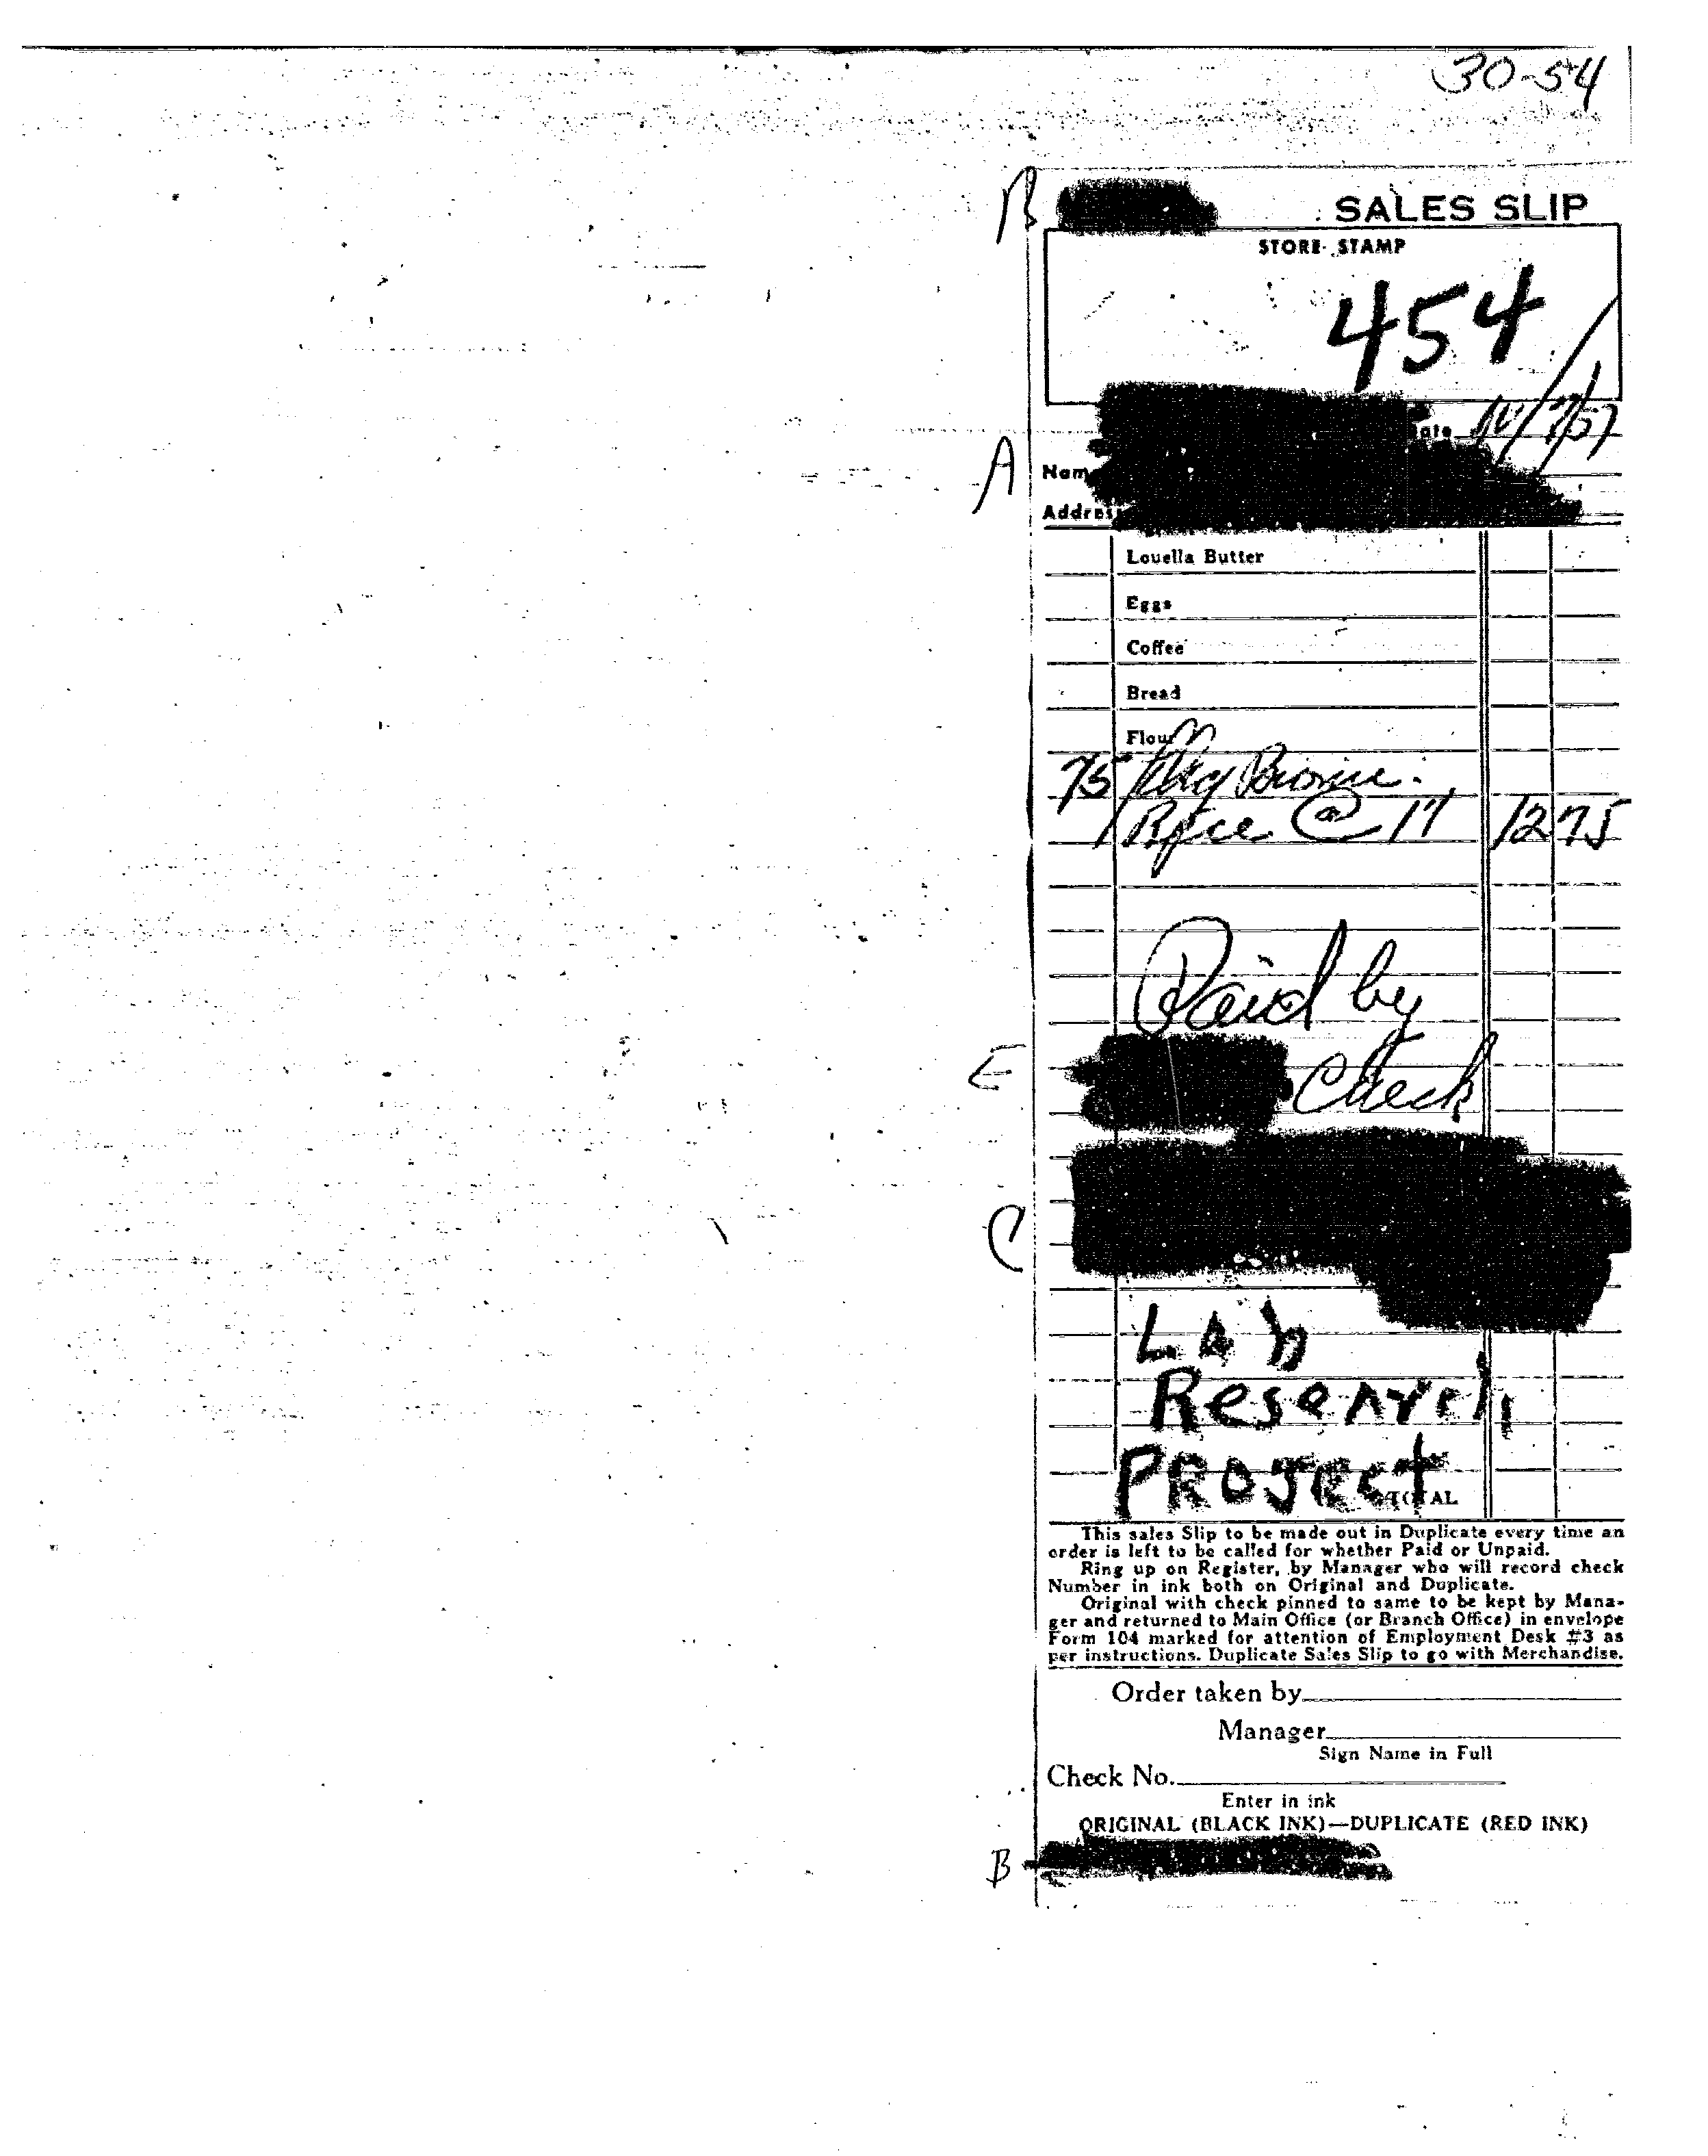 30-54
B
SALES SLIP
STORE STAMP
454
ate
A
Nam
Address
Louella Butter
Eggs
Coffee
Bread
Flour
75 Pkg
@ 17 12 75
Paid by
E
Check
C
Lab
Research
PROJECT
TOTAL
This sales Slip to be made out in Duplicate every time an
order is left to be called for whether Paid or Unpaid.
Ring up on Register, by Manager who will record check
Number in ink both on Original and Duplicate.
Original with check pinned to same to be kept by Mana-
ger and returned to Main Office (or Branch Office) in envelope
Form 104 marked for attention of Employment Desk #3 as
per instructions. Duplicate Sales Slip to go with Merchandise.
Order taken by
Manager
Sign Name in Full
Check No.
Enter in ink
ORIGINAL (BLACK INK)—DUPLICATE (RED INK)
B